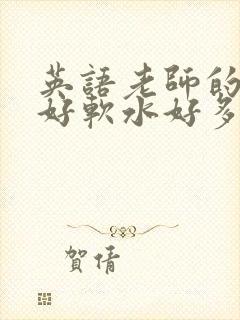 英語老師的
好軟水好多
賀倩